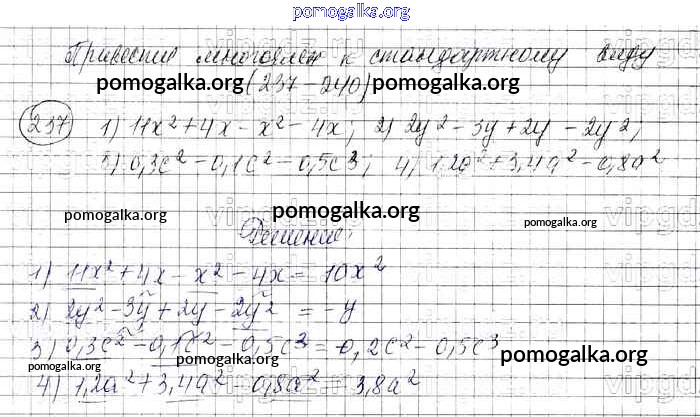 pomogalka.org
Привести многочлен к стандартному виду
pomogalka.org (237-240) pomogalka.org
237 1) 11x² + 4x - x² - 4x; 2) 2y² - 3y + 2y - 2y²;
3) 0,3c² - 0,1c² - 0,5c³; 4) 1,2a² + 3,4a² - 0,8a²
pomogalka.org pomogalka.org pomogalka.org
Решение:
1) 11x² + 4x - x² - 4x = 10x²
2) 2y² - 3y + 2y - 2y² = -y
3) 0,3c² - 0,1c² - 0,5c³ = 0,2c² - 0,5c³
pomogalka.org pomogalka.org
4) 1,2a² + 3,4a² - 0,8a² = 3,8a²